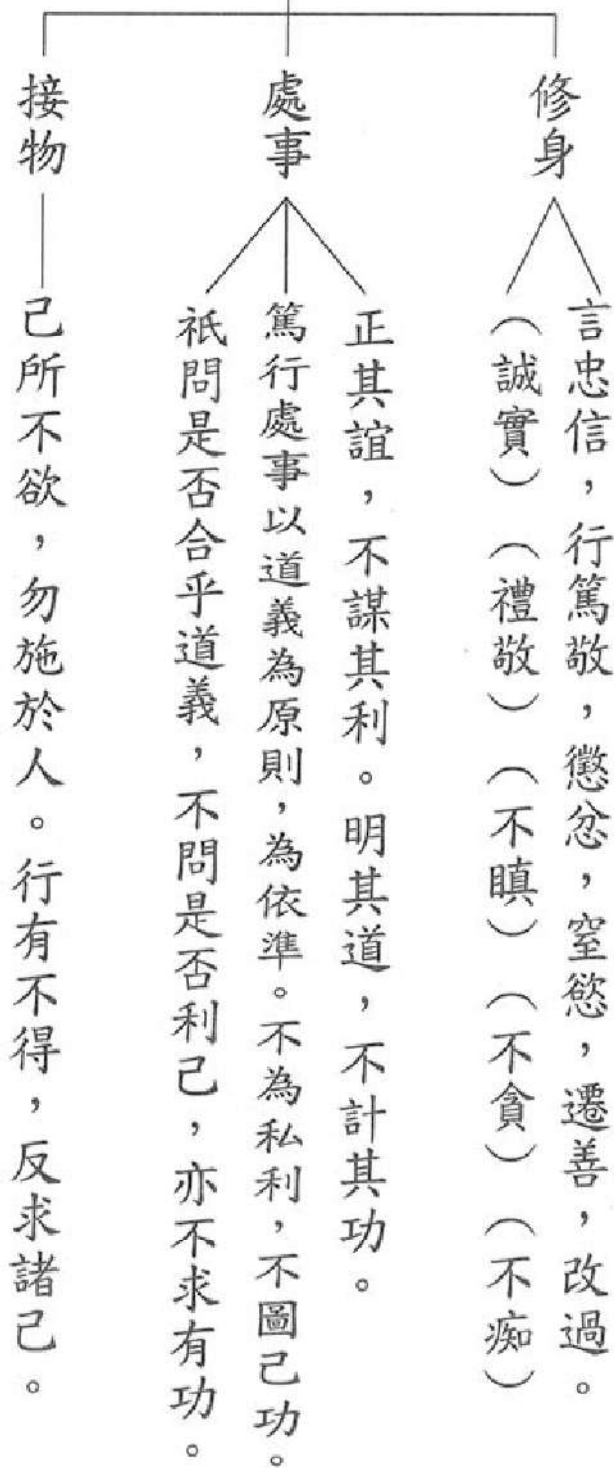 修身
言忠信，行篤敬，懲忿，窒慾，遷善，改過。
（誠實）（禮敬）（不瞋）（不貪）（不痴）
處事
正其誼，不謀其利。明其道，不計其功。
篤行處事以道義為原則，為依準。不為私利，不圖己功。
祇問是否合乎道義，不問是否利己，亦不求有功。
接物
己所不欲，勿施於人。行有不得，反求諸己。